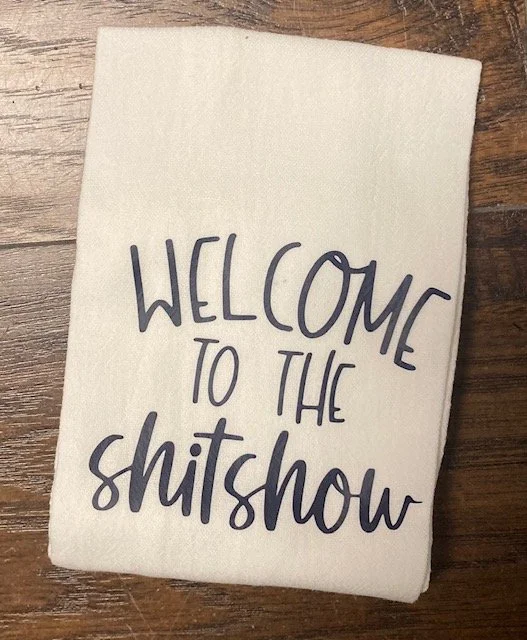 WELCOME
TO THE
shitshow